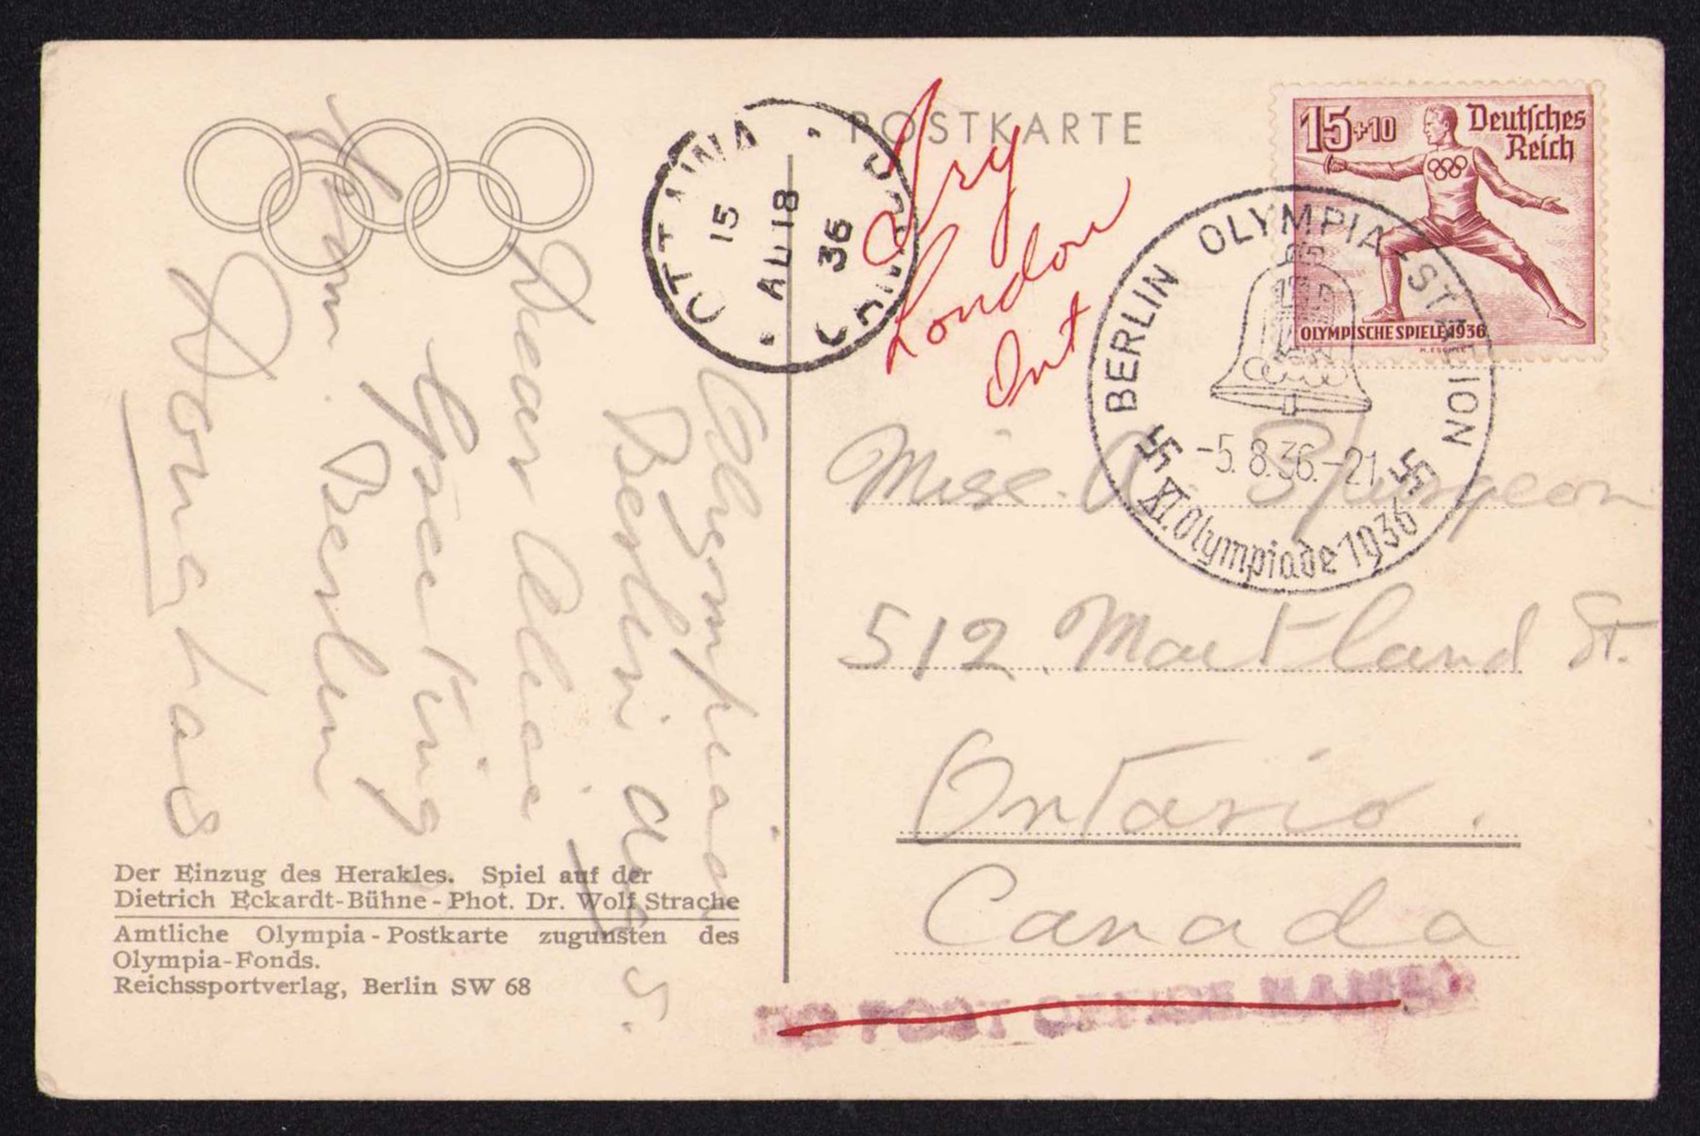 POSTKARTE
OTTAWA
15
AU 18
36
CANADA
Try
London
Ont
15+10
Deutsches
Reich
OLYMPISCHE SPIELE 1936
BERLIN OLYMPIA-STADION
-5.8.36.-21
XI. Olympiade 1936
Miss. A. Spurgeon
512 Maitland St.
Ontario.
Canada
NO POST OFFICE NAMED
Olympiad
Berlin Aug 5.
Dear Alice
Greeting
from Berlin
Douglas
Der Einzug des Herakles. Spiel auf der
Dietrich Eckardt-Bühne - Phot. Dr. Wolf Strache
Amtliche Olympia-Postkarte zugunsten des
Olympia-Fonds.
Reichssportverlag, Berlin SW 68